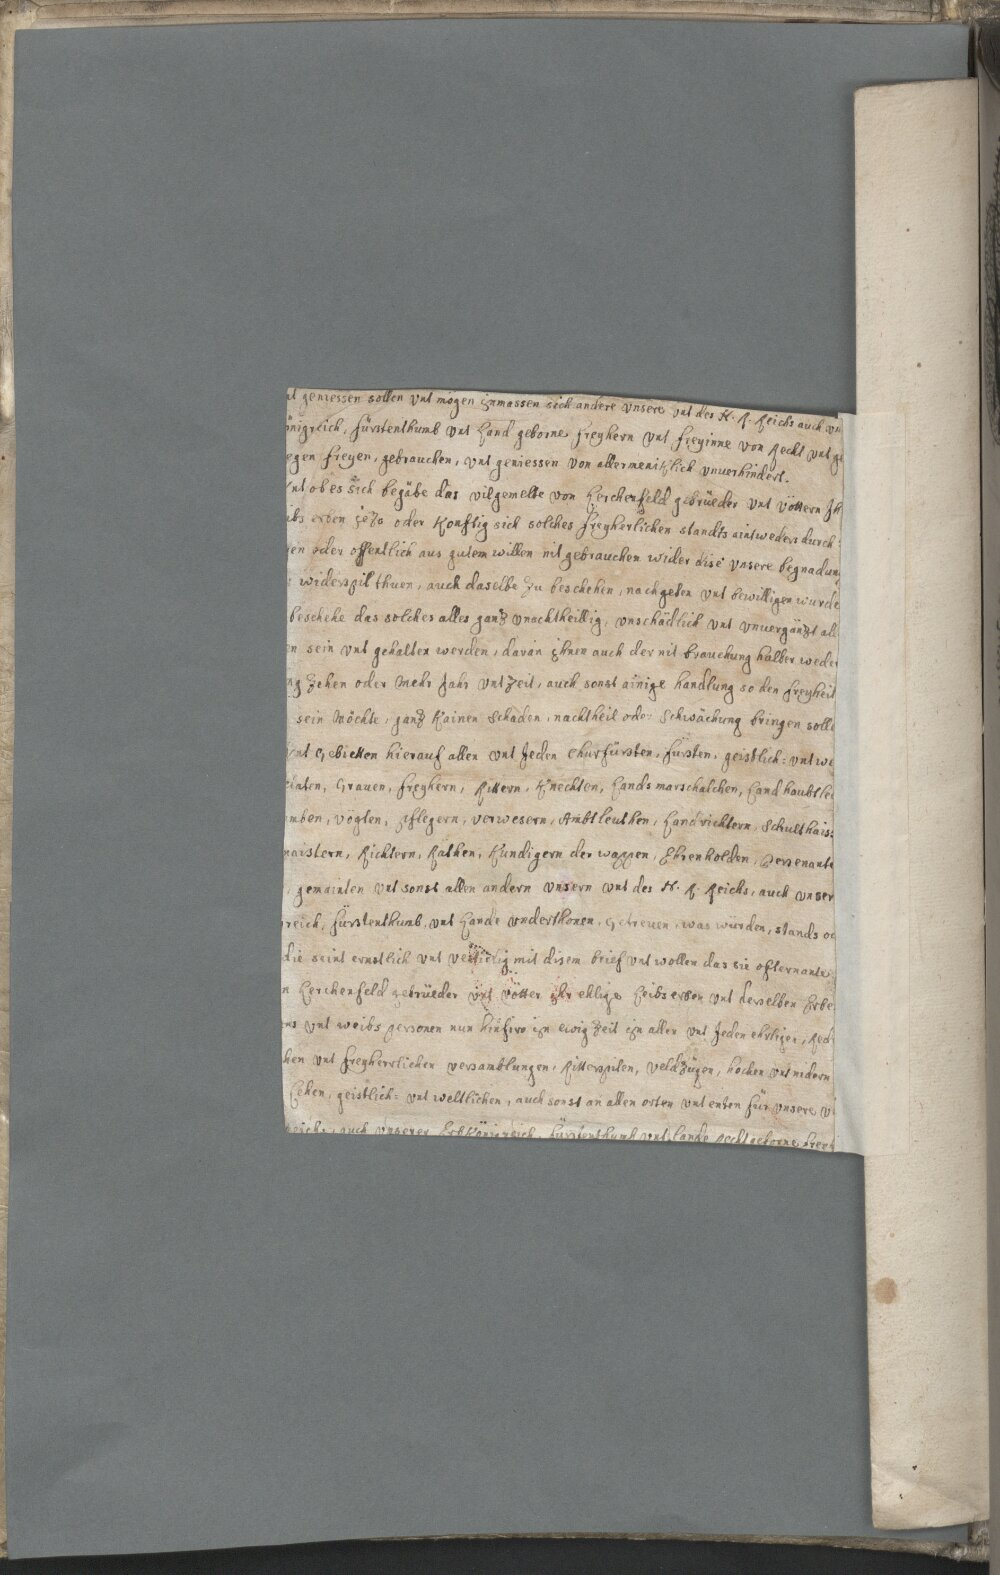 nt geniessen sollen vnt mögen inmassen sich andere vnsere vnt des H. R. Reichs auch vn
önigreich, Fürstenthumb vnt Land geborne Freyhern vnt Freyinne von Recht vnt ge
egen Freyen, gebrauchen, vnt geniessen von allermeniklich vnuerhindert.
Vnt ob es sich begäbe das vilgemelte von Lerchenfeld gebrüeder vnt vöttern Ih
ibs erben jezo oder konftig sich solches Freyherlichen standts aintweders durch
en oder offentlich aus gutem willen nit gebrauchen wider dise vnsere begnadun
widerspil thuen, auch daselbe zu beschehen, nachgeben vnt bewilligen wurde
beschehe das solches alles ganz vnachtheillig, vnschädlich vnt vnuergänzt all
en sein vnt gehalten werden, daran ihnen auch der nit brauchung halber weder
ng zehen oder mehr Jahr vnt zeit, auch sonst ainige handlung so den freyheit
sein möchte, ganz kainen schaden, nachtheil oder schwächung bringen solle
Vnt Gebietten hierauf allen vnt Jeden Churfürsten, Fürsten, geistlich: vnt we
elaten, Grauen, Freyhern, Rittern, Knechten, Landsmarschalchen, Landhaubtle
mben, vögten, Pflegern, verwesern, Ambtleuthen, Landrichtern, Schulthais:
maistern, Richtern, Räthen, Kundigern der wappen, Ehrenholden, Persenante
gemainten vnt sonst allen andern vnsern vnt des H. R. Reichs, auch vnser
reich, Fürstenthumb, vnt Lande vnderthonen, Getreuen, was würden, stands od
die seint ernstlich vnt vestiglig mit disem brief vnt wollen das sie ofternante
n Lerchenfeld gebrüeder vnt vötter ihr ehlige Leibs erben vnt derselben Erbe
ns vnt weibs personen nun hinfiro in ewig zeit in allen vnt Jeden ehrligen, Red
hen vnt freyherrlichen versamblungen, Ritterspilen, veldzügen, hochen vnt nidern
Lehen, geistlich: vnt weltlichen, auch sonst an allen orten vnt enten für vnsere v
Reichs, auch vnserer ErbKönigreich, Fürstenthumb vnt Lande recht geborne frey